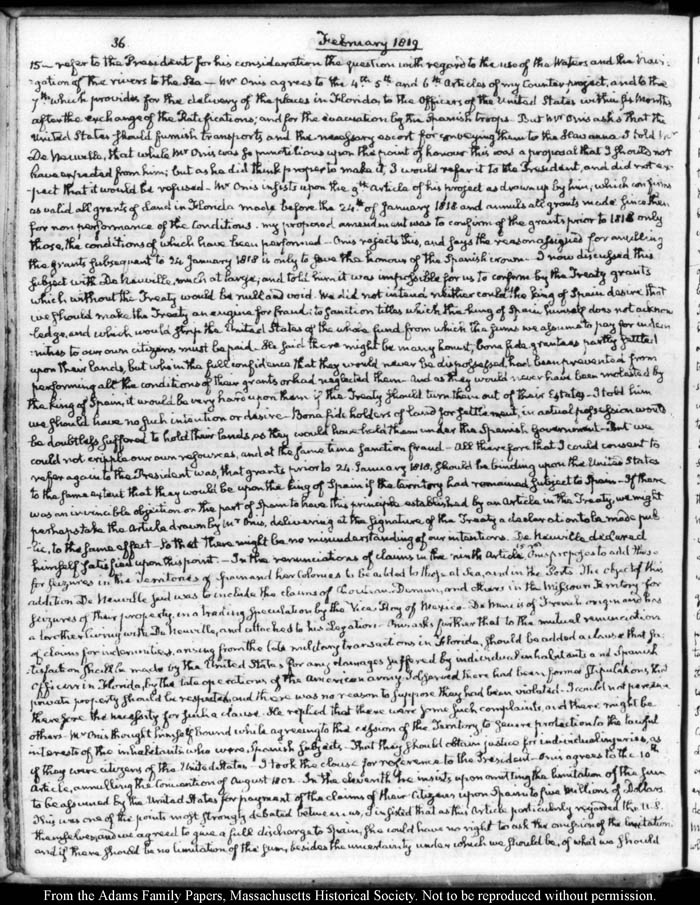 36
February 1819
15 — refer to the President for his consideration the question with regard to the use of the Waters and the Navi-
gation of the rivers to the Sea — Mr Onis agrees to the 4th 5th and 6th Articles of my Counter project, and to the
7th which provides for the delivery of the places in Florida, to the Officers of the United States within six Months
after the exchange of the Ratifications; and for the evacuation by the Spanish troops. But Mr Onis asks that the
United States should furnish transports and the necessary escort for conveying them to the Havanna. I told Mr
De Neuville, that while Mr Onis was so punctilious upon the point of honour this was a proposal that I should not
have expected from him; but as he did think proper to make it, I would refer it to the President, and did not ex-
-pect that it would be refused — Mr Onis insists upon the 9th Article of his project as drawn up by him; which confirms
as valid all grants of land in Florida made before the 24th of January 1818 and annuls all grants made since then
for non performance of the Conditions. My proposed amendment was to confirm of the grants prior to 1818 only
those, the conditions of which have been performed — Onis rejects this, and says the reason assigned for annulling
the grants subsequent to 24 January 1818 is only to save the honour of the Spanish crown — I now discussed this
subject with De Neuville, much at large; and told him it was impossible for us to confirm by the Treaty grants
which without the Treaty would be null and void. We did not intend neither could the King of Spain desire that
we should make the Treaty an engine for fraud; to sanction titles which the King of Spain himself does not acknow-
-ledge, and which would strip the United States of the whole fund from which the sums we assume to pay for indem-
-nities to our own citizens must be paid. He said there might be many honest, bona fide grantees partly settled
upon their lands, but who in the full confidence that they would never be dispossessed had been prevented from
performing all the conditions of their grants or had neglected them. And as they would never have been molested by
the King of Spain, it would be very hard upon them if the Treaty should turn them out of their Estates — I told him
we should have no such intention or desire — Bona fide holders of land for settlement, in actual possession would
be doubtless suffered to hold their lands, as they would have held them under the Spanish Government — But we
could not cripple our own resources, and at the same time sanction fraud — All therefore that I could consent to
refer again to the President was, that grants prior to 24 January 1818, should be binding upon the United States
to the same extent that they would be upon the King of Spain if the territory had remained subject to Spain — If there
was an invincible objection on the part of Spain to have this principle established by an Article in the Treaty, we might
perhaps take the Article drawn by Mr Onis, delivering at the signature of the Treaty a declaration to be made pub-
-lic, to the same effect — So that there might be no misunderstanding of our intentions. De Neuville declared
himself satisfied upon this point — In the renunciations of claims in the ninth Article Onis proposes to add those
for seizures in the Territories of Spain and her Colonies to be added to those at Sea, and in the Ports. The object of this
addition De Neuville said was to include the claims of Chouteau, Demun, and others in the Missouri Territory for
seizures of their property, in a trading speculation by the Vice-Roy of Mexico. De Mun is of French origin and has
a brother living with De Neuville, and attached to his Legation. Onis asks further that to the mutual renunciation
of claims for indemnities, arising from the late military transactions in Florida, should be added a clause that sa-
tisfaction should be made by the United States for any damages suffered by individual inhabitants and Spanish
Officers in Florida, by the late operations of the American army. I observed there had been formal stipulations, that
private property should be respected, and there was no reason to suppose they had been violated. I could not perceive
therefore the necessity for such a clause. He replied that there were some such complaints, and there might be
others. Mr Onis thought himself bound while agreeing to the cession of the Territory to secure protection to the lawful
interests of the inhabitants who were Spanish subjects — That they should obtain justice for individual injuries, as
if they were citizens of the United States — I took the clause for reference to the President. Onis agrees to the 10th
Article, annulling the Convention of August 1802. In the eleventh he insists upon omitting the limitation of the sum
to be assumed by the United States for payment of the claims of their Citizens upon Spain to five Millions of Dollars.
This was one of the points most strongly debated between us; I insisted that as this Article particularly regarded the U.S.
themselves, and we agreed to give a full discharge to Spain, she could have no right to ask the omission of the limitation
and if there should be no limitation of the sum, besides the uncertainty under which we should be, of what we should
From the Adams Family Papers, Massachusetts Historical Society. Not to be reproduced without permission.